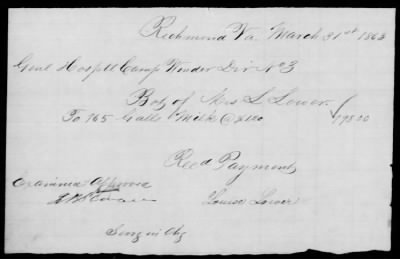 Richmond Va. March 31st 1863
Genl Hospitl Camp Winder Div. No 3
Bot of Mrs L Lower
To 165 Galls Milk @ 1.20 198.00
Recd Payment
Examined Approved
Louisa Lower
Surg in Chg